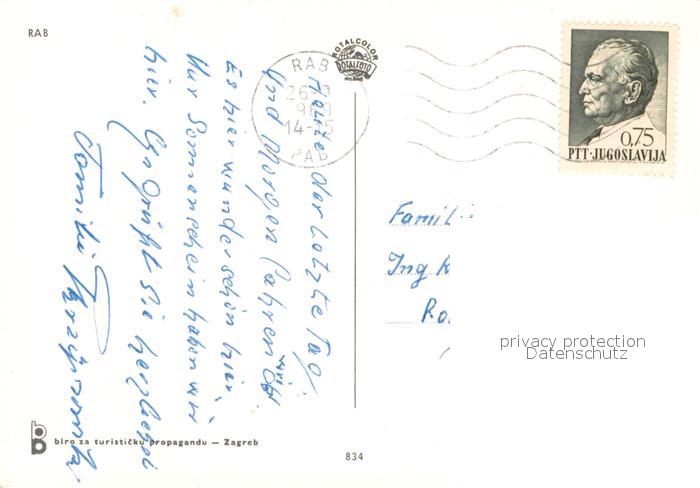 RAB
ROTALCOLOR
ROTALFOTO
MILANO
RAB
14-15
RAB
0,75
PTT·JUGOSLAVIJA
Heute der Letzte Tag,
Und Morgen fahren wir ab
Es hier wunderschön hier,
Nur Sonnenschein haben wir
hier. Es Grüßt Sie herzlichst
Familie
Famili
Ing K
Ro
privacy protection
Datenschutz
biro za turističku propagandu — Zagreb
834